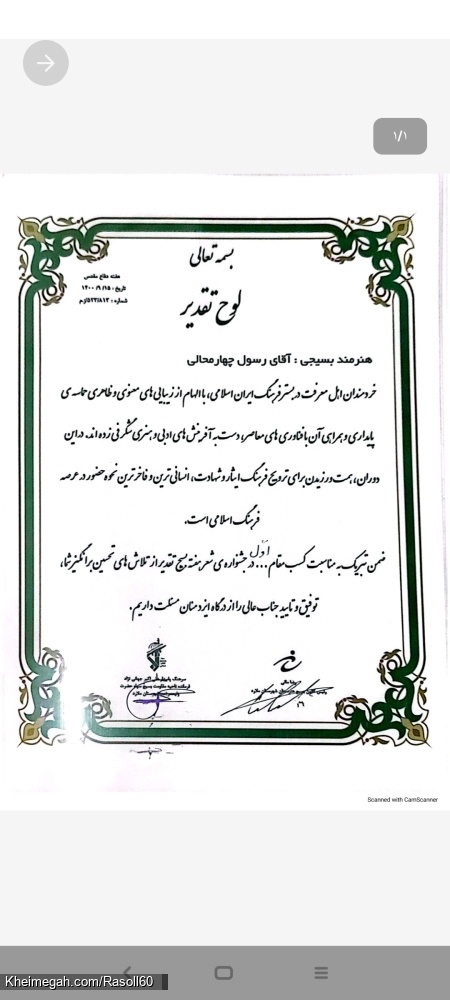 ۱/۱
بسمه تعالی
هفته دفاع مقدس
تاریخ : ۱۴۰۰/۹/۱۵
شماره : ۵۲۳/۸۱۳/ازم
لوح تقدیر
هنرمند بسیجی : آقای رسول چهارمحالی
خردمندان اهل معرفت در بستر فرهنگ ایران اسلامی، با الهام از زیبایی های معنوی و ظاهری حماسه ی
پایداری و همراهی آن با فناوری های معاصر، دست به آفرینش های ادبی و هنری شگرفی زده اند. در این
دوران، همت ورزیدن برای ترویج فرهنگ ایثار و شهادت، انسانی ترین و فاخرترین نحوه حضور در عرصه
فرهنگ اسلامی است.
ضمن تبریک به مناسبت کسب مقام ...اول... در جشنواره ی شعر هفته بسیج تقدیر از تلاش های تحسین برانگیز شما،
توفیق و تایید جنابعالی را از درگاه ایزد منان مسئلت داریم.
Scanned with CamScanner
Kheimegah.com/Rasoll60